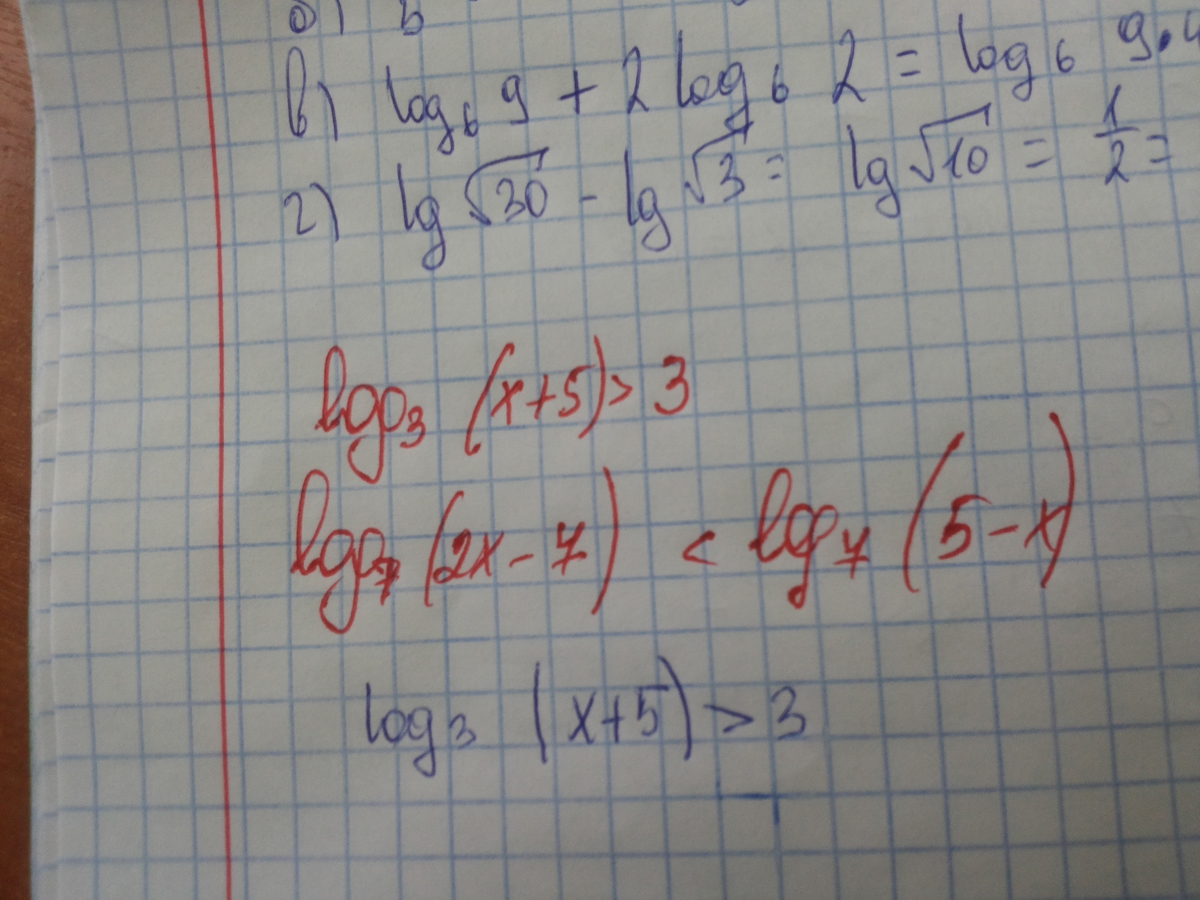 в) log₆ 9 + 2 log₆ 2 = log₆ 9·4
г) lg √30 - lg √3 = lg √10 = 1/2 =
log₃ (x+5) > 3
log₇ (2x-7) < log₇ (5-x)
log₃ (x+5) > 3